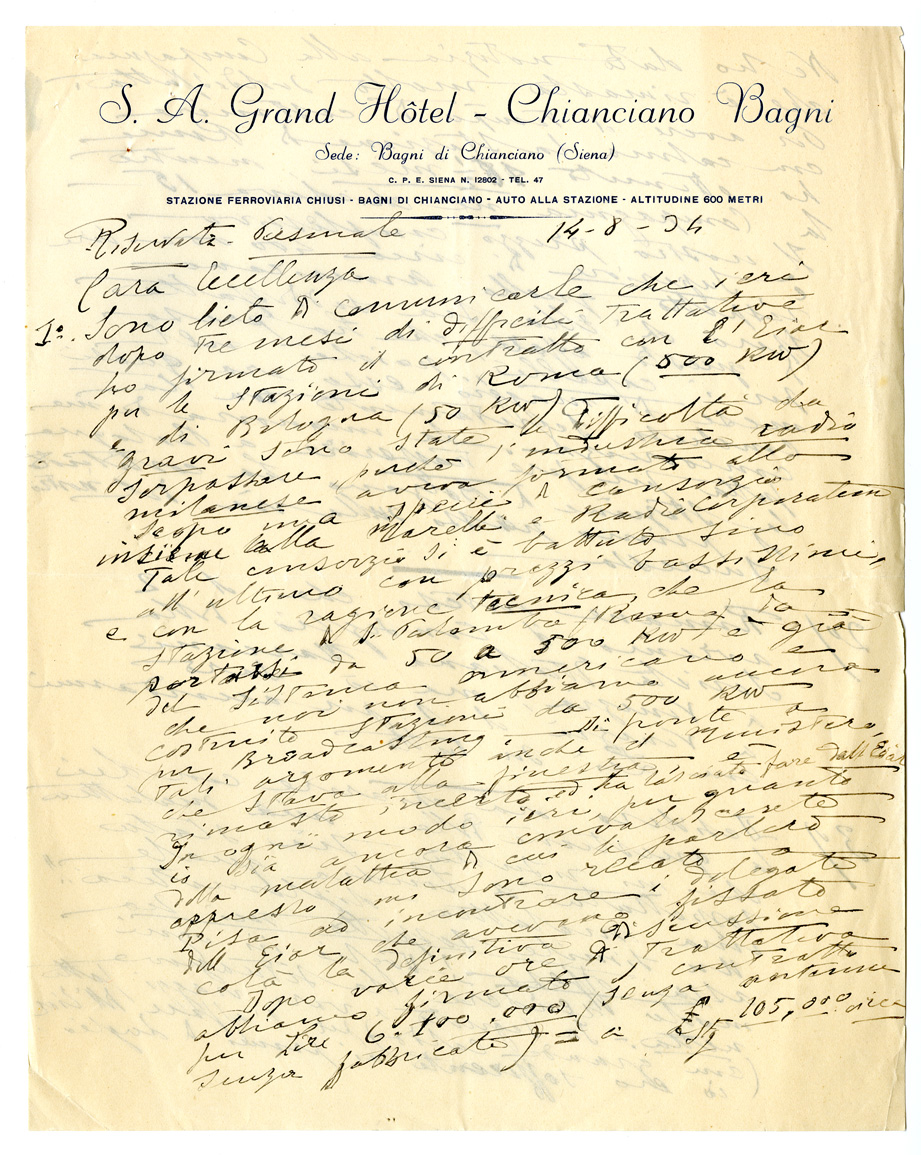 S. A. Grand Hôtel - Chianciano Bagni
Sede: Bagni di Chianciano (Siena)
C. P. E. SIENA N. 12802 - TEL. 47
STAZIONE FERROVIARIA CHIUSI - BAGNI DI CHIANCIANO - AUTO ALLA STAZIONE - ALTITUDINE 600 METRI
Riservata - Personale 14-8-34
Cara Eccellenza
1º. Sono lieto di comunicarle che ieri
dopo tre mesi di difficili trattative
ho firmato il contratto con l'Eiar
per le stazioni di Roma (500 KW)
e di Bologna (50 KW). Difficoltà da
gravi sono state le
sorpassare perchè l'industria radio
milanese aveva formato allo
scopo una specie di consorzio
insieme alla Marelli e Radiocorporation
Tale consorzio si è battuto sino
all'ultimo con prezzi bassissimi,
e con la ragione tecnica che la
stazione di S. Palomba (Roma) da
portarsi da 50 a 500 KW è già
del sistema americano e
che noi non abbiamo ancora
costruito stazioni da 500 KW
per Broadcasting. Di fronte a
tali argomenti anche il Ministero,
che stava alla finestra è
rimasto incerto ed ha lasciato fare dall'Eiar
In ogni modo ieri, per quanto
io sia ancora convalescente
della malattia di cui le parlerò
appresso, mi sono recato a
Pisa ad incontrare i delegati
dell'Eiar che avevano fissato
colà la definitiva discussione
Dopo varie ore di trattativa
abbiamo firmato i contratti
per Lire 6.100.000 (senza antenne
senza fabbricato) = a £ 105,000 circa